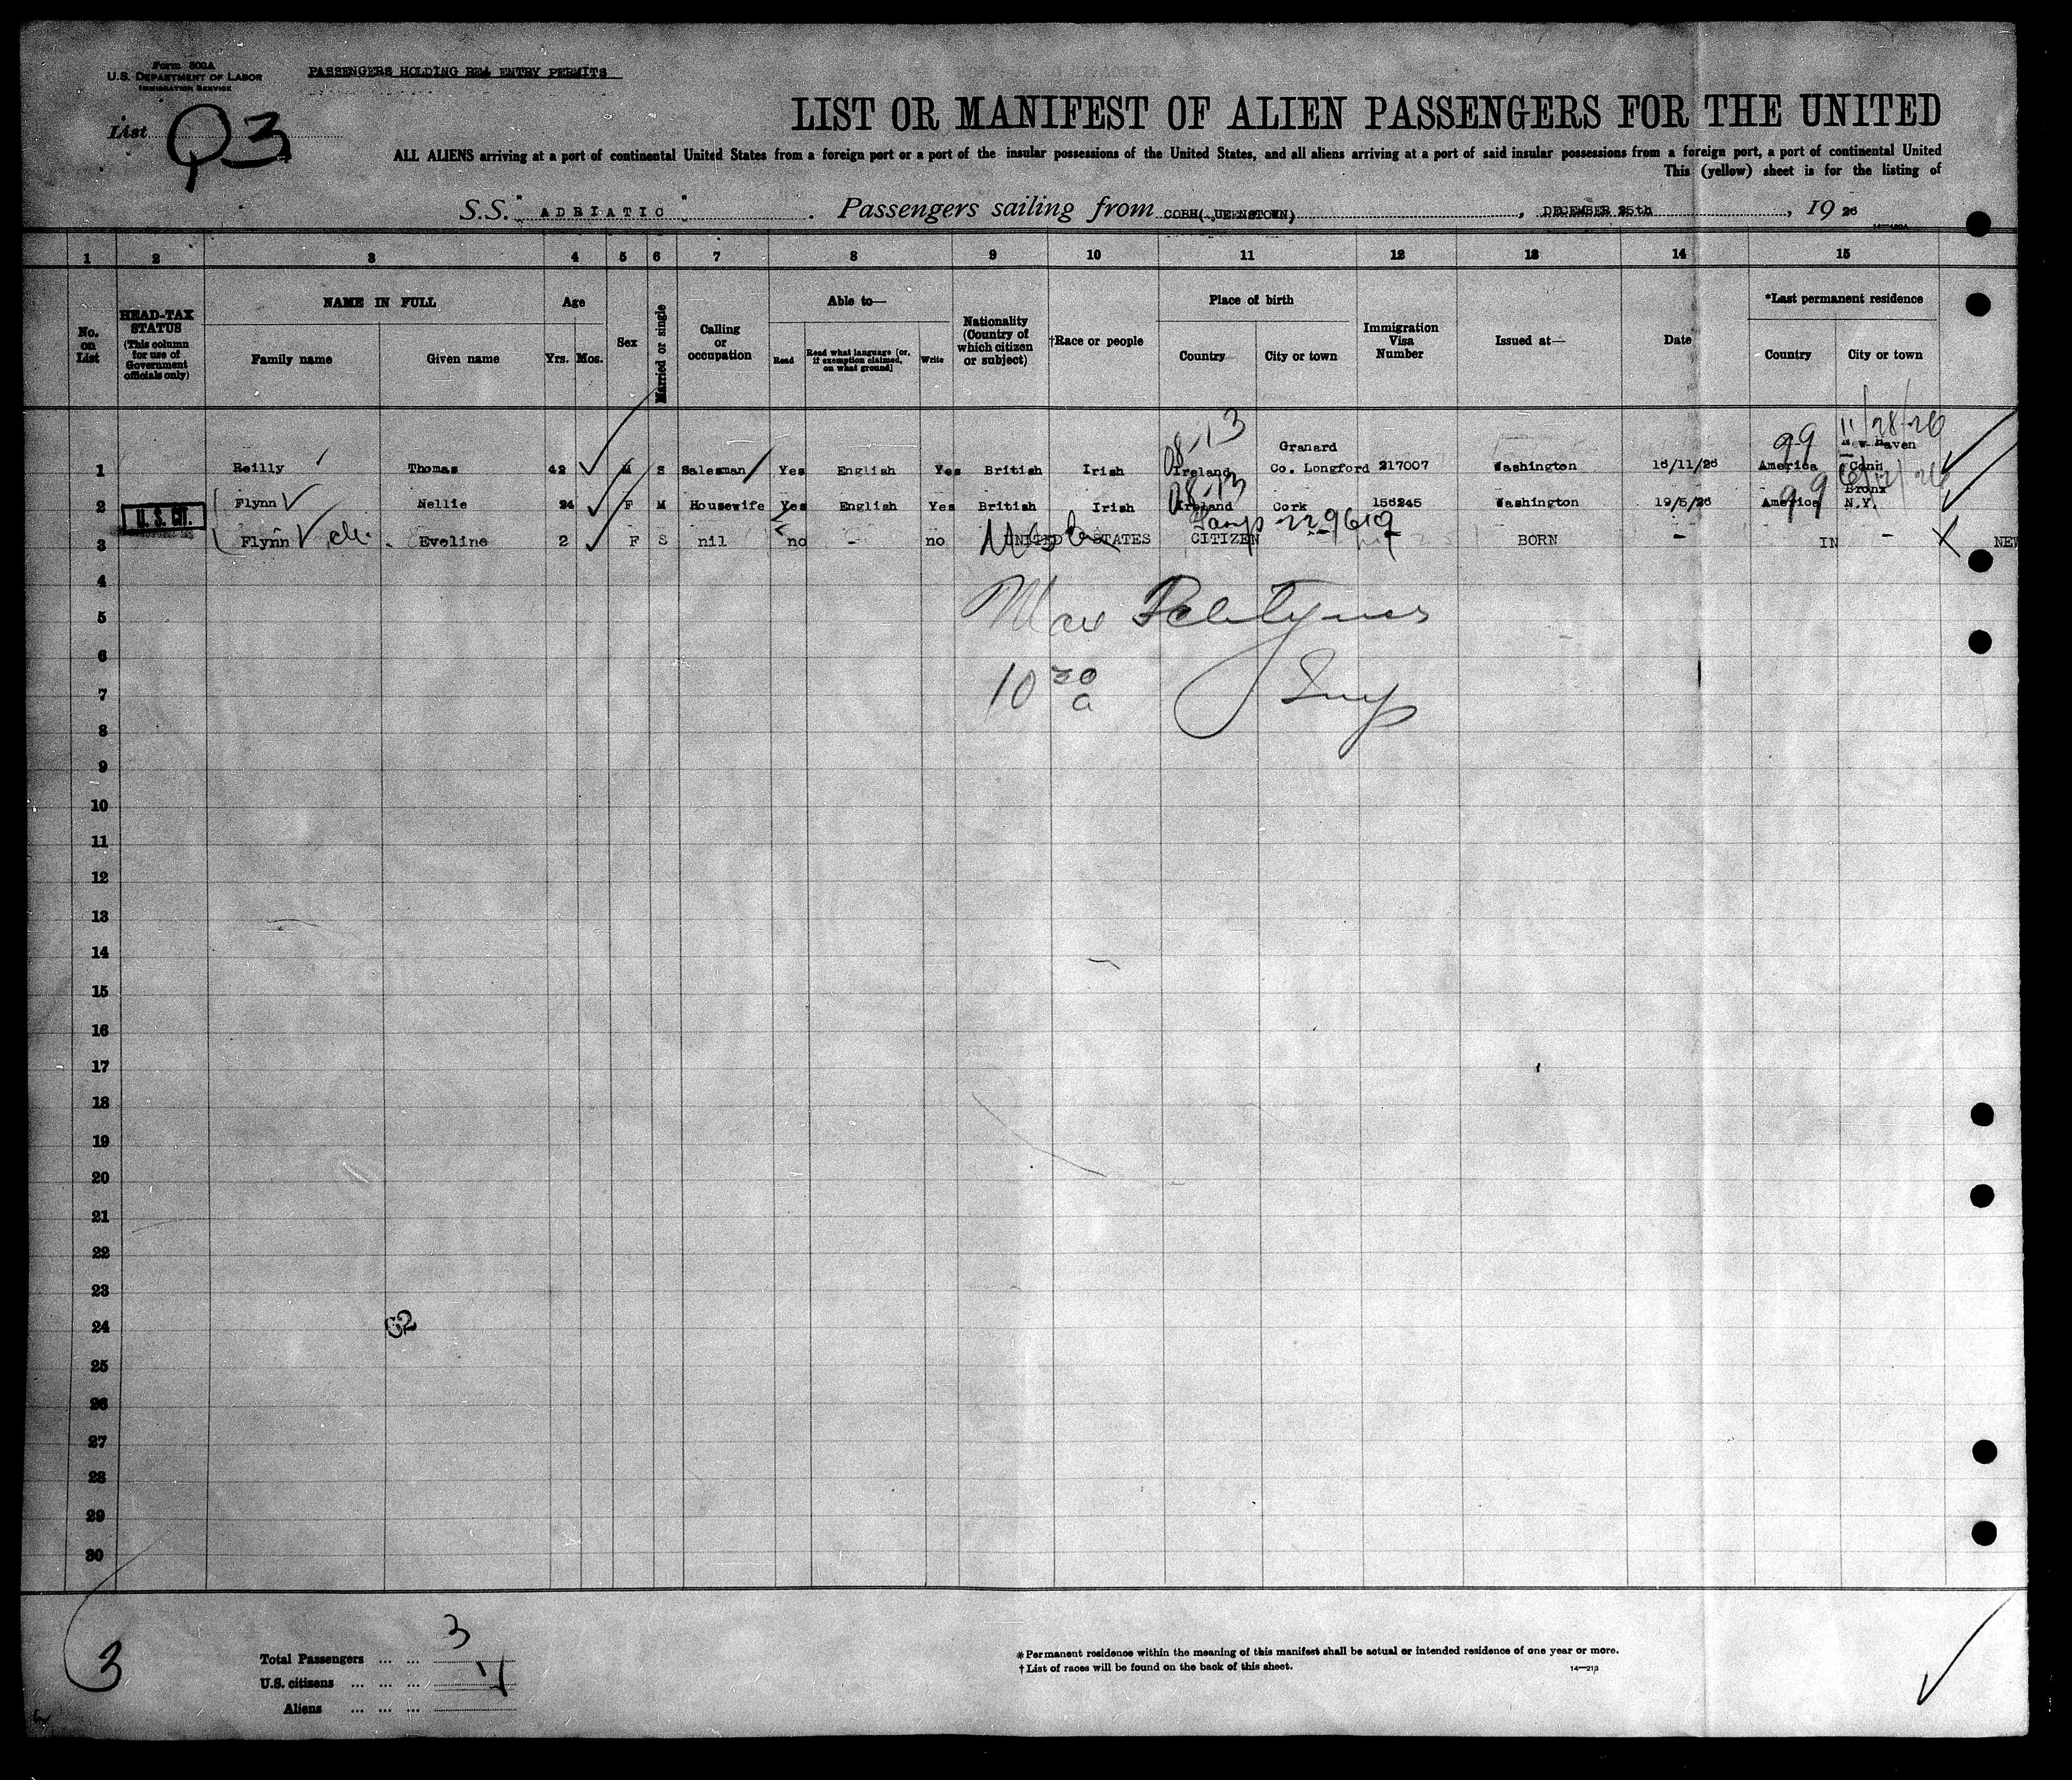 Form 500A
U.S. DEPARTMENT OF LABOR
IMMIGRATION SERVICE
PASSENGERS HOLDING RE-ENTRY PERMITS
List 3
LIST OR MANIFEST OF ALIEN PASSENGERS FOR THE UNITED
ALL ALIENS arriving at a port of continental United States from a foreign port or a port of the insular possessions of the United States, and all aliens arriving at a port of said insular possessions from a foreign port, a port of continental United
This (yellow) sheet is for the listing of
S.S. "ADRIATIC". Passengers sailing from COBH( UEENSTOWN), DECEMBER 25th, 1926
1 2 3 4 5 6 7 8 9 10 11 12 13 14 15
No. on List
HEAD-TAX STATUS (This column for use of Government officials only)
NAME IN FULL
Family name Given name
Age
Yrs. Mos.
Sex
Married or single
Calling or occupation
Able to—
Read Read what language [or, if exemption claimed, on what ground] Write
Nationality (Country of which citizen or subject)
†Race or people
Place of birth
Country City or town
Immigration Visa Number
Issued at—
Date
*Last permanent residence
Country City or town
11/28/26
08-13 Granard 99 New Haven
1 Reilly Thomas 42 M S Salesman Yes English Yes British Irish Ireland Co. Longford 217007 Washington 16/11/26 America Conn
08-13 99 Bronx
2 U.S. CIT. Flynn Nellie 24 F M Housewife Yes English Yes British Irish Ireland Cork 156245 Washington 19/5/26 America N.Y.
229619
3 Flynn Eveline 2 F S nil no - no UNITED STATES CITIZEN - BORN - IN - NEW
4
5 Max
6
7 10 30 a Insp
8
9
10
11
12
13
14
15
16
17
18
19
20
21
22
23
24
25
26
27
28
29
30
3
Total Passengers ... ... 3
U.S. citizens ... ... ...
Aliens ... ... ...
* Permanent residence within the meaning of this manifest shall be actual or intended residence of one year or more.
† List of races will be found on the back of this sheet.
14—213